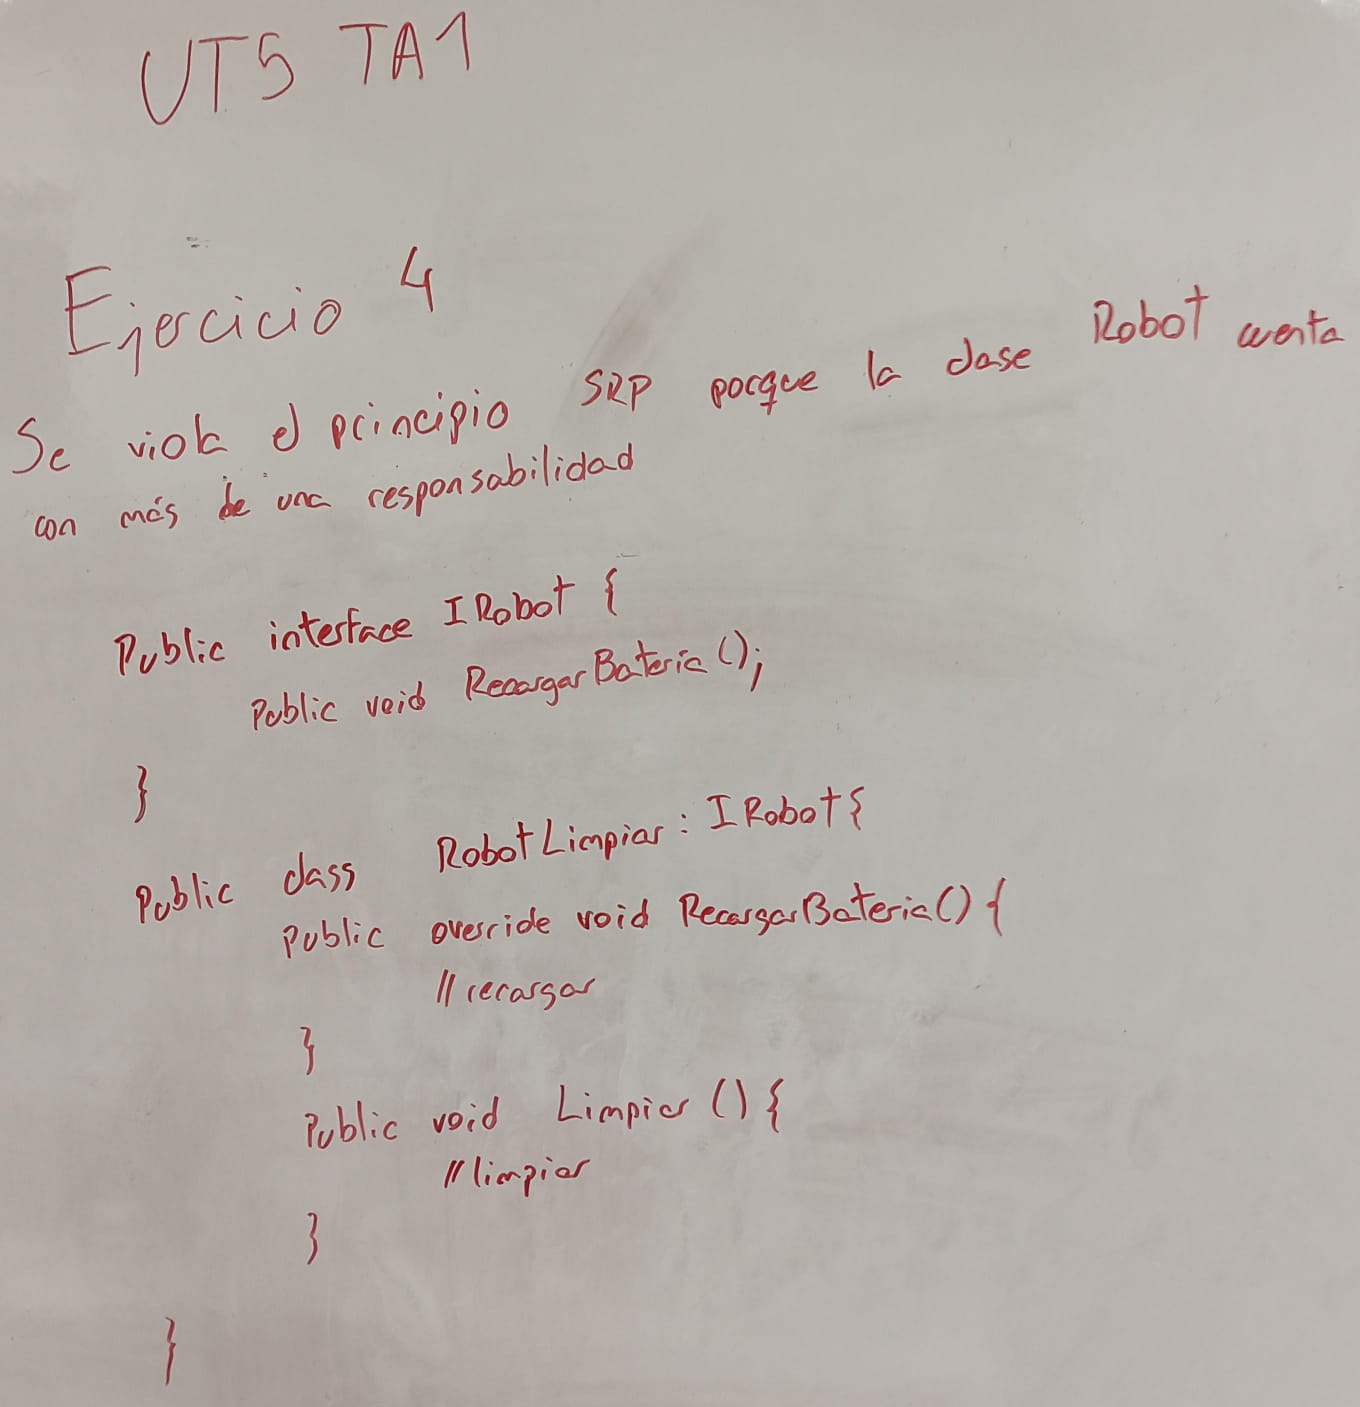 UT5 TA1
Ejercicio 4
Se viola el principio SRP porque la clase Robot cuenta
con más de una responsabilidad
Public interface IRobot {
Public void RecargarBateria();
}
Public class RobotLimpiar : IRobot {
Public override void RecargarBateria() {
// recargar
}
Public void Limpiar () {
// limpiar
}
}